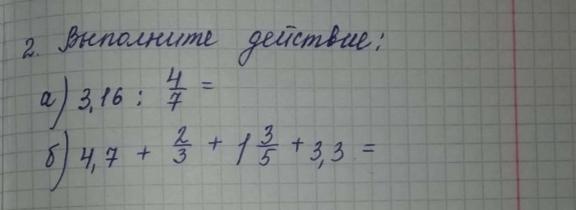 2. Выполните действие:
а) 3,16 : 4/7 =
б) 4,7 + 2/3 + 1 3/5 + 3,3 =